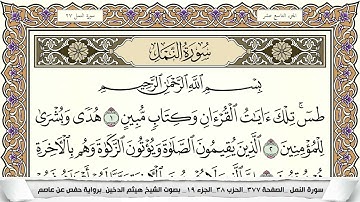 الجزء التاسع عشر
سورة النمل ٢٧
سُورَةُ النَّمْلِ
بِسْمِ اللَّهِ الرَّحْمَٰنِ الرَّحِيمِ
طسٓ ۚ تِلْكَ ءَايَٰتُ الْقُرْءَانِ وَكِتَابٍ مُّبِينٍ ١ هُدًى وَبُشْرَىٰ
لِلْمُؤْمِنِينَ ٢ الَّذِينَ يُقِيمُونَ الصَّلَوٰةَ وَيُؤْتُونَ الزَّكَوٰةَ وَهُم بِالْءَاخِرَةِ
سورة النمل _ الصفحة ٣٧٧_ الحزب ٣٨_ الجزء ١٩_ بصوت الشيخ هيثم الدخين_ برواية حفص عن عاصم